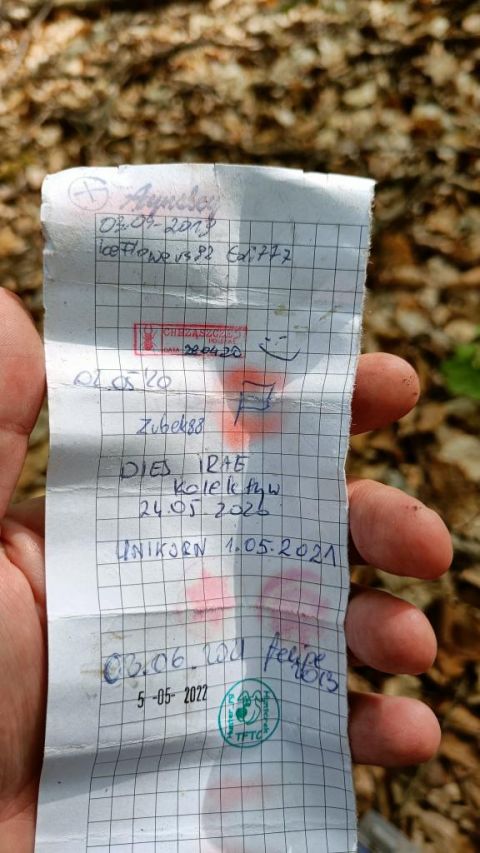 03-09-2019
iceflowers82 Edi777
DATA 28.04.20
02.05'20
Zubek88
DIES IRAE
Kolektyw
24.05 2020
UNIKORN 1.05.2021
03.06.2021 felipe
2013
5 -05- 2022
TFTC